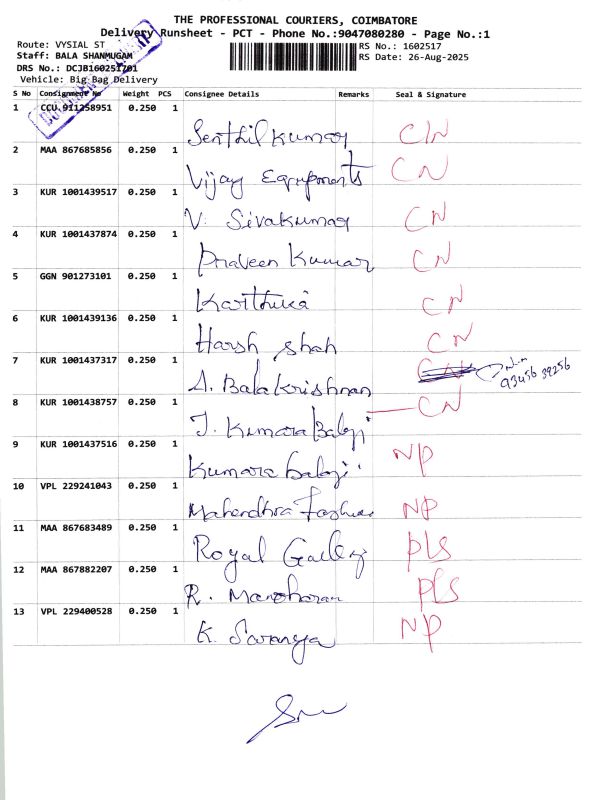 THE PROFESSIONAL COURIERS, COIMBATORE
Delivery Runsheet - PCT - Phone No.:9047080280 - Page No.:1
Route: VYSIAL ST RS No.: 1602517
Staff: BALA SHANMUGAM RS Date: 26-Aug-2025
DRS No.: DCJB160251701
Vehicle: Big Bag Delivery
S No Consignment No Weight PCS Consignee Details Remarks Seal & Signature
1 CCU 911258951 0.250 1
Senthil Kumar CN
2 MAA 867685856 0.250 1
Vijay Equipments CN
3 KUR 1001439517 0.250 1
V. Sivakumar CN
4 KUR 1001437874 0.250 1
Praveen Kumar CN
5 GGN 901273101 0.250 1
Karthika CN
6 KUR 1001439136 0.250 1
Harsh Shah CN
7 KUR 1001437317 0.250 1
A. Balakrishnan CN 93456 39256
8 KUR 1001438757 0.250 1
J. Kumara Balaji CN
9 KUR 1001437516 0.250 1
Kumara balaji NP
10 VPL 229241043 0.250 1
Mahendhra Fashion NP
11 MAA 867683489 0.250 1
Royal Gallery PLS
12 MAA 867882207 0.250 1
R. Manoharan PLS
13 VPL 229400528 0.250 1
K. Saranya NP